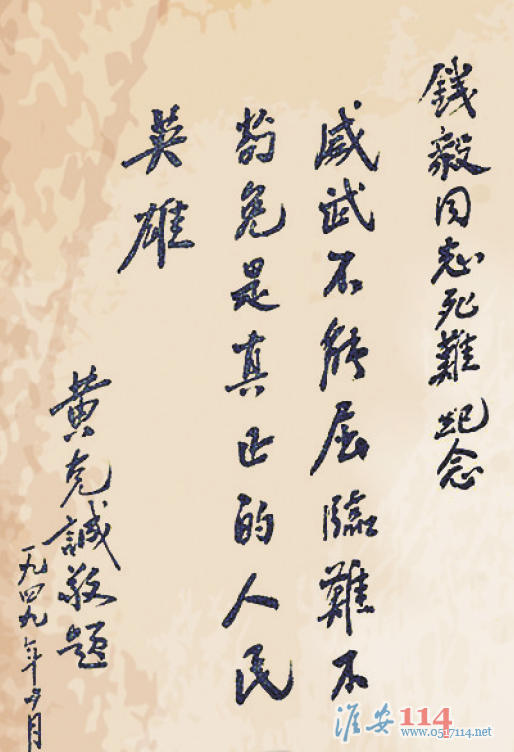 錢毅同志死難紀念
威武不能屈臨難不
苟免是真正的人民
英雄
黄克誠敬題
一九四九年 月
淮安114
www.0517114.net